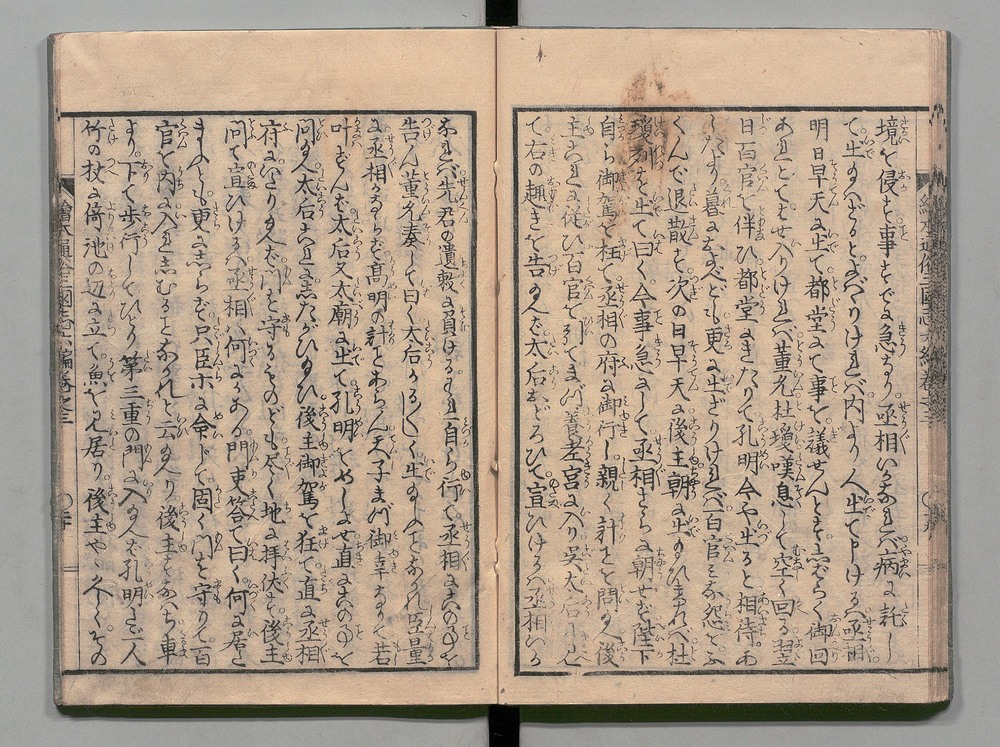 境を侵す事すでに急なり丞相いかなれバ病に託し
て出給ハざるとよばゝりけれバ内より人出て申けるハ丞相
明日早天に出て都堂にて事を議せんとす
あれとてはせ入りけれバ董允杜瓊嘆息して空く回る翌
日百官を伴ひ都堂にきたりて孔明今や出ると相待
日暮におよべども更に出ざりけれバ百官みな怨をふ
くんで退散す次の日早天に後主朝に出給ひけれバ杜
瓊列を出て曰く今事急にして丞相さらに朝せず陛下
自ら御駕を枉て丞相の府に御行し親く計を問給へ後
主これに従ひ百官を引てまづ養老宮に入り呉太后に
て右の趣きを告給へバ太后おどろひて宣ひけるハ丞相いか
なれバ先君の遺敕に負けるわれ自ら行て丞相に
告ん董允奏して曰く太后かるく出給ふことなかれ臣量
に丞相かならず高明の計あらん天子まづ御幸なりて若
叶ずんバ太后又太廟に出て孔明をめしよせ直にそのゆへを
問給へ太后これにしたがひ給ひ後主御駕を枉て直に丞相
府にいたり給へバ門を守るものども尽く地に拝伏す後主
問て宣ひけるハ丞相ハ何にある門吏答て曰く何に居
給ふとも更にしらず只臣ホに命下て固く門を守りて百
官を内に入れしむることなかれと云給へり後主すなハち車
より下て歩行してひとり第三重の門に入給へバ孔明たゞ一人
竹の杖に倚池の辺に立て魚を見居り後主やゝ久しくその
繪本通俗三國志六編卷之三
繪本通俗三國志六編卷之三